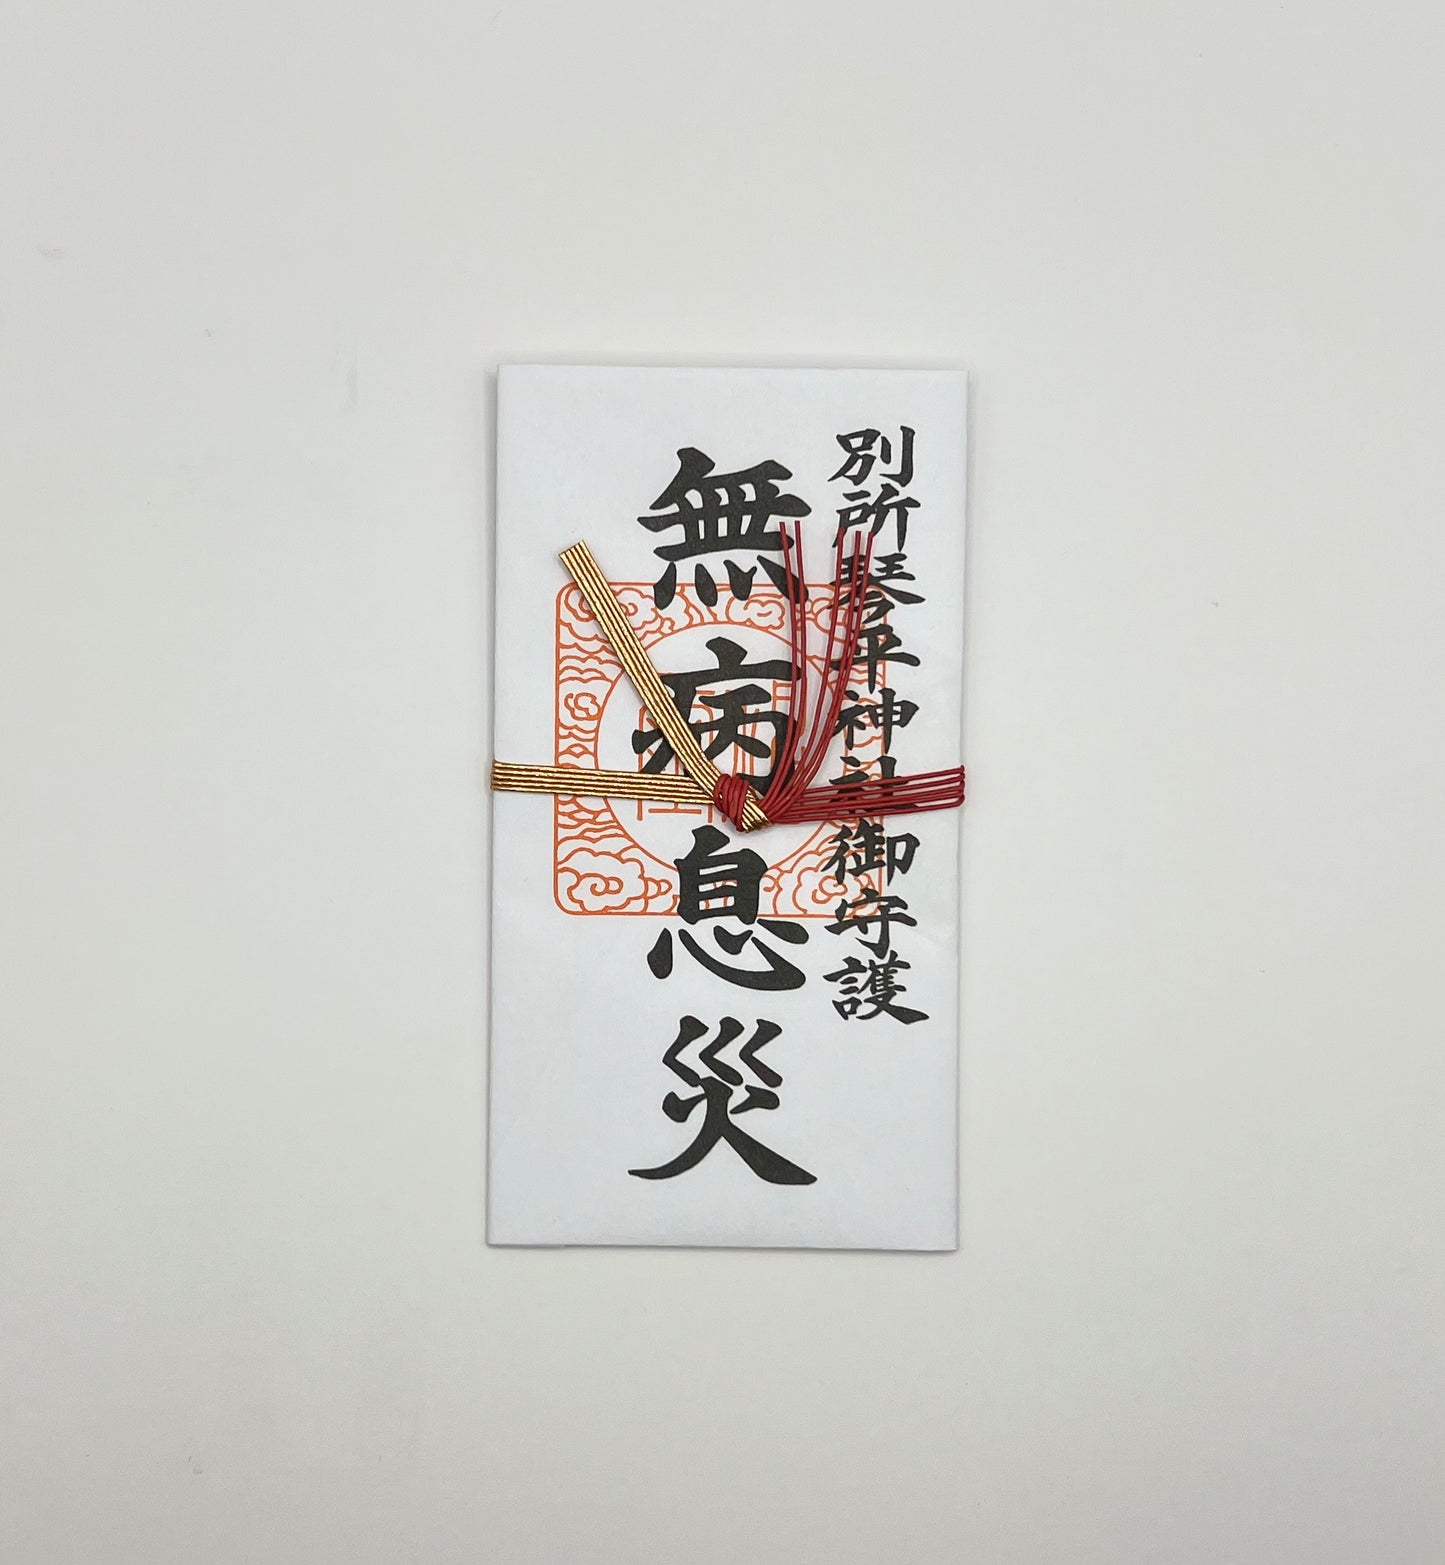 別所琴平神社御守護
無病息災